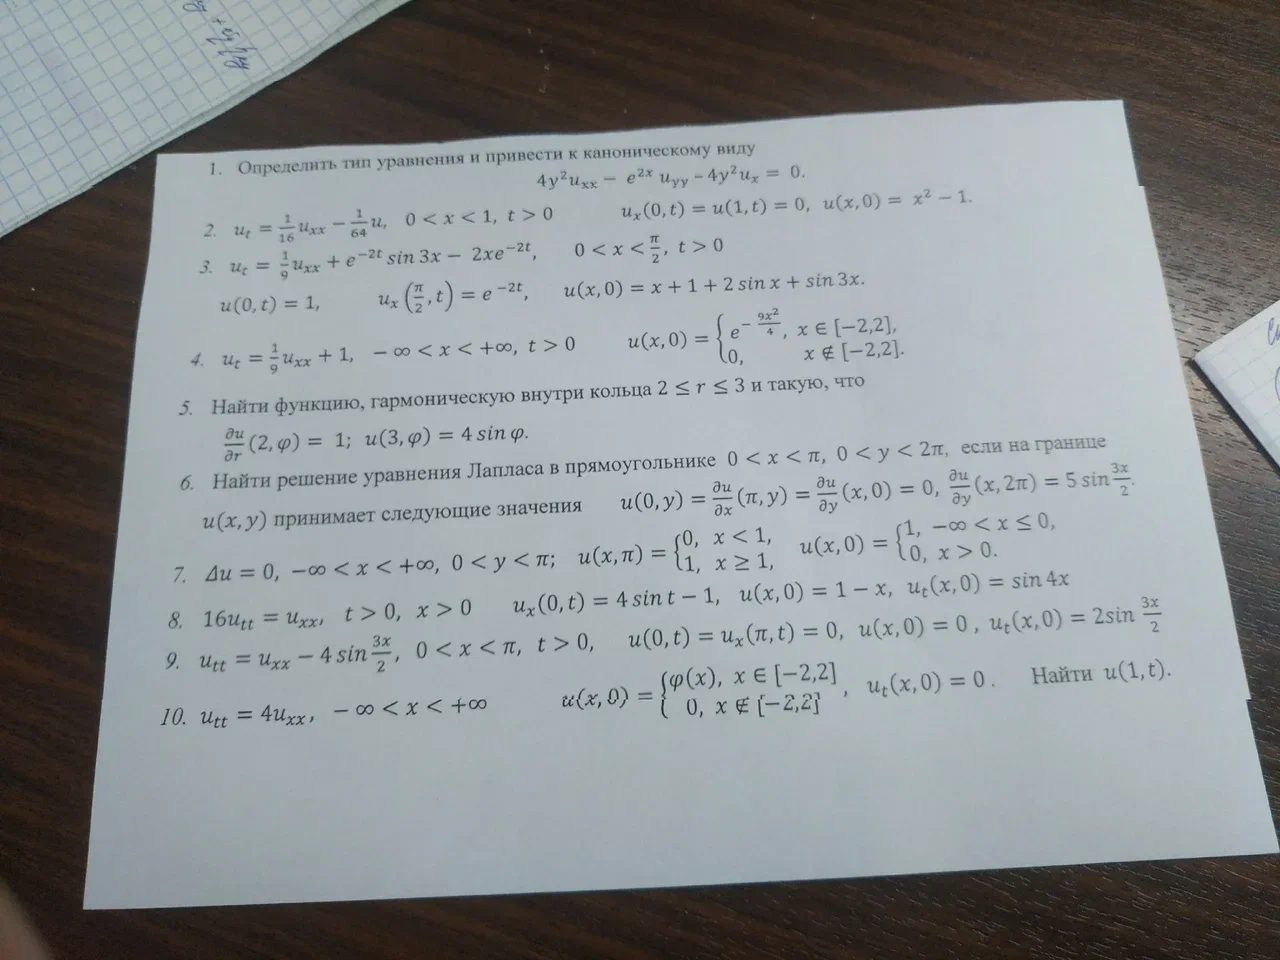 1. Определить тип уравнения и привести к каноническому виду
4y²uₓₓ − e²ˣ u_yy − 4y²uₓ = 0.
2. u_t = 1/16 uₓₓ − 1/64 u, 0 < x < 1, t > 0 uₓ(0, t) = u(1, t) = 0, u(x, 0) = x² − 1.
3. u_t = 1/9 uₓₓ + e^(−2t) sin 3x − 2xe^(−2t), 0 < x < π/2, t > 0
u(0, t) = 1, uₓ(π/2, t) = e^(−2t), u(x, 0) = x + 1 + 2 sin x + sin 3x.
4. u_t = 1/9 uₓₓ + 1, −∞ < x < +∞, t > 0 u(x, 0) = { e^(−9x²/4), x ∈ [−2,2], 0, x ∉ [−2,2].
5. Найти функцию, гармоническую внутри кольца 2 ≤ r ≤ 3 и такую, что
∂u/∂r (2, φ) = 1; u(3, φ) = 4 sin φ.
6. Найти решение уравнения Лапласа в прямоугольнике 0 < x < π, 0 < y < 2π, если на границе
u(x, y) принимает следующие значения u(0, y) = ∂u/∂x (π, y) = ∂u/∂y (x, 0) = 0, ∂u/∂y (x, 2π) = 5 sin 3x/2.
7. Δu = 0, −∞ < x < +∞, 0 < y < π; u(x, π) = { 0, x < 1, 1, x ≥ 1, u(x, 0) = { 1, −∞ < x ≤ 0, 0, x > 0.
8. 16u_tt = uₓₓ, t > 0, x > 0 uₓ(0, t) = 4 sin t − 1, u(x, 0) = 1 − x, u_t(x, 0) = sin 4x
9. u_tt = uₓₓ − 4 sin 3x/2, 0 < x < π, t > 0, u(0, t) = uₓ(π, t) = 0, u(x, 0) = 0 , u_t(x, 0) = 2sin 3x/2
10. u_tt = 4uₓₓ, −∞ < x < +∞ u(x, 0) = { φ(x), x ∈ [−2,2] 0, x ∉ [−2,2] , u_t(x, 0) = 0 . Найти u(1, t).